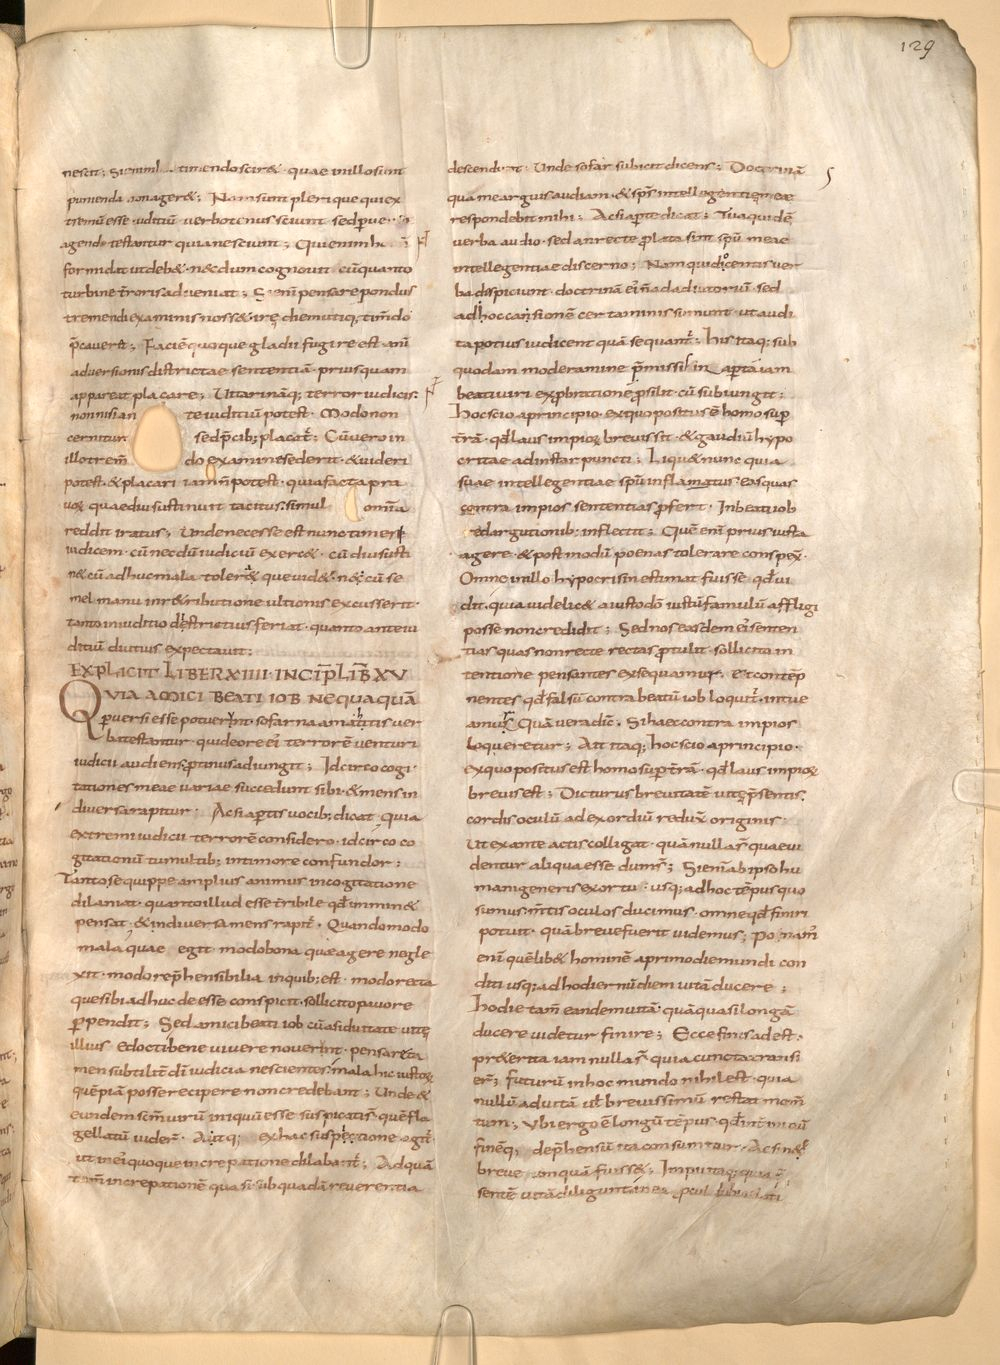 129
nescit; timendo sciret quae in illo sunt
punienda Nam sunt plerique qui ex
tremū esse iuditiū verbotenus sciunt sed
agendo testantur quia nesciunt; Qui enim
formidat ut debet necdum cognovit cū quanto
turbine t̄roris adveniat; S; enī pensare pondus
tremendi examinis nosset irę diem utiq; timēdo
p̄caveret; Faciē quoque gladii fugire est anī
adversionis districtae sententiā priusquam
appareat placare; Uitari nāq; terror iudicis
nonnisi an te iuditiū potest. Modo non
cernitur sed p̄cib; placat̄; Cū vero in
illo trem̄ do examine sederit & videri
potest & placari iam n̄ potest quia facta pra
vor̨ quae diu sustinuit tacitus simul omīa
reddit iratus; Unde necesse est nunc timer&
iudicem cū necdū iudiciū exerc& cū diu susti
n& cū adhuc mala toler& que vid& n& cū se
mel manu in retributione ultionis excusserit
tanto in iuditio districtius feriat quanto ante iu
ditiū diutius expectavit;
EXPLICIT LIBER XIIII INCIP̄ LIB̄ XV
QVIA AMICI BEATI IOB NEQUAQUĀ
pversi esse potuerint sofar naamatitis ver
ba testantur qui de ore ei' terrorē venturi
iudicii audiens p̄tinus adiungit; Idcirco cogi
tationes meae variae succedunt sibi & mens in
diversa rapitur Ac si aptis vocib; dicat quia
extremi iudicii terrorē considero idcirco co
gitationū tumultib; in timore confundor;
Tanto se quippe amplius animus in cogitatione
dilaniat quanto illud esse t̄ribile qd̄ immin&
pensat & in diversa mens rapit̄ Quando modo
mala quae egit modo bona quae agere negle
xit modo rep̄hensibilia in quib; est modo recta
que sibi adhuc deesse conspicit sollicito pavore
p̄pendit; Sed amici beati iob cū asiduitate vitę
illius edocti bene vivere noverint pensare ta
men subtilit̄ dī iudicia nescientes mala hic iustor̨
quēpiā posse recipere non credebant; Unde &
eundem scm̄ virū iniquū esse suspicati s̄ quē fla
gellatū vider̄ Atq; ex hac suspectione agit̄
ut in ei' quoque increpatione dilabant̄; Ad quā
tam̄ increpationē quasi sub quadā reverentia
descendunt Unde sofar subicit dicens; Doctrinā
qua me arguis audiam & sp̄s intellegentię meę
respondebit mihi; Ac si apte dicat; Tua quidē
verba audio sed an recte p̄lata sint spū meae
intellegentiae discerno; Nam qui docentis ver
ba dispiciunt doctrinā ei' n̄ ad adiutoriū sed
ad hoc cansionē certaminis sumunt ut audi
ta potius iudicent quā sequant̄; His itaq; sub
quodam moderamine p̄missis in apta iam
beati viri exp̄bratione p̄silit cū subiungit;
Hoc scio a principio ex quo positus ē homo sup
t̄rā qd̄ laus impior̨ brevis sit & gaudiū hypo
critae ad instar puncti; Liqu& nunc quia
suae intellegentiae spū inflammatus easquas
contra impios sententias p̄fert In beati iob
redargutionib; inflectit; Quē enī prius iusta
agere & postmodū poenas tolerare conspex̄
Omne in illo hypocrisin estimat fuisse qd̄ vi
dit quia videlic& a iusto dō iustū famulū affligi
posse non credidit; Sed nos easdem ei' senten
tias quas non recte rectas p̄tulit sollicita in
tentione pensantes exsequamur et contēp
nentes qd̄ falsū contra beatū iob loquit̄ intue
amur Quā vera dic̄ Si haec contra impios
loqueretur; Ait itaq; hoc scio a principio
ex quo positus est homo sup t̄rā qd̄ laus impior̨
brevis est; Dicturus brevitatē vitę p̄sentis
cordis oculū ad exordiū reduxit originis
Ut ex ante actis colligat quā nulla s̄ quae vi
dentur aliqua esse dum s̄; Si enī ab ipso hu
mani generis exortu usq; ad hoc tēpus quo
sumus mtis oculos ducimus omne qd̄ finiri
potuit quā breve fuerit videmus; Ponam'
enī quēlib& hominē a primo die mundi con
diti usq; ad hodiernū diem vitā ducere;
Hodie tam̄ eandem vitā quā quasi longā
ducere videtur finire; Ecce finis adest
pr&erita iam nulla s̄ quia cuncta transi
er̄; futurū in hoc mundo nihil est quia
nullū ad vitā vl̄ brevissimū restat mom̄
tum; Vbi ergo ē longū tēpus qd̄ int̄ initiū
finēq; dep̄hensū ita consumitur Ac si n&
breve umquā fuiss&; Impii itaq; quia p̄
sentē vitā diligunt in ea p̄cul dubio lati